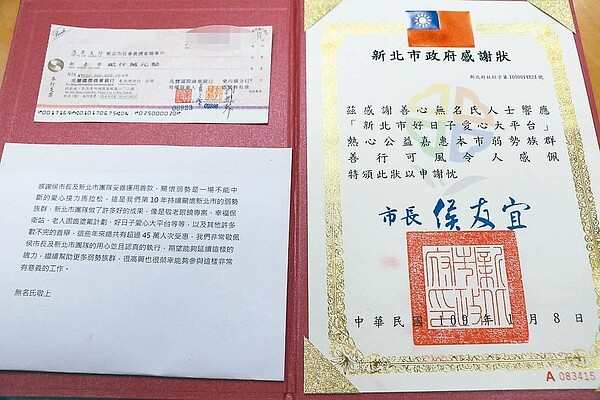 貳仟萬元整
永豐國際商業銀行
本行支票
感謝侯市長及新北市團隊妥善運用善款，關懷弱勢是一場不能中
斷的愛心接力馬拉松，這是我們第 10 年持續關懷新北市的弱勢
族群，新北市團隊做了許多好的成果，像是敬老眼鏡專案、幸福保
衛站、老人固齒塗氟計劃、好日子愛心大平台等等，以及其他許多
數不完的善舉，這些年來總共有超過 45 萬人次受惠，我們非常敬佩
侯市長及新北市團隊的用心並且認真的執行，期望能夠延續這樣的
魄力，繼續幫助更多弱勢族群，很高興也很榮幸能夠參與這樣非常
有意義的工作。
無名氏敬上
新北市政府感謝狀
茲感謝善心無名氏人士響應
「新北市好日子愛心大平台」
熱心公益嘉惠本市弱勢族群
善行可風令人感佩
特頒此狀以申謝忱
市長 侯友宜
中華民國 109 年 1 月 8 日
A 083415